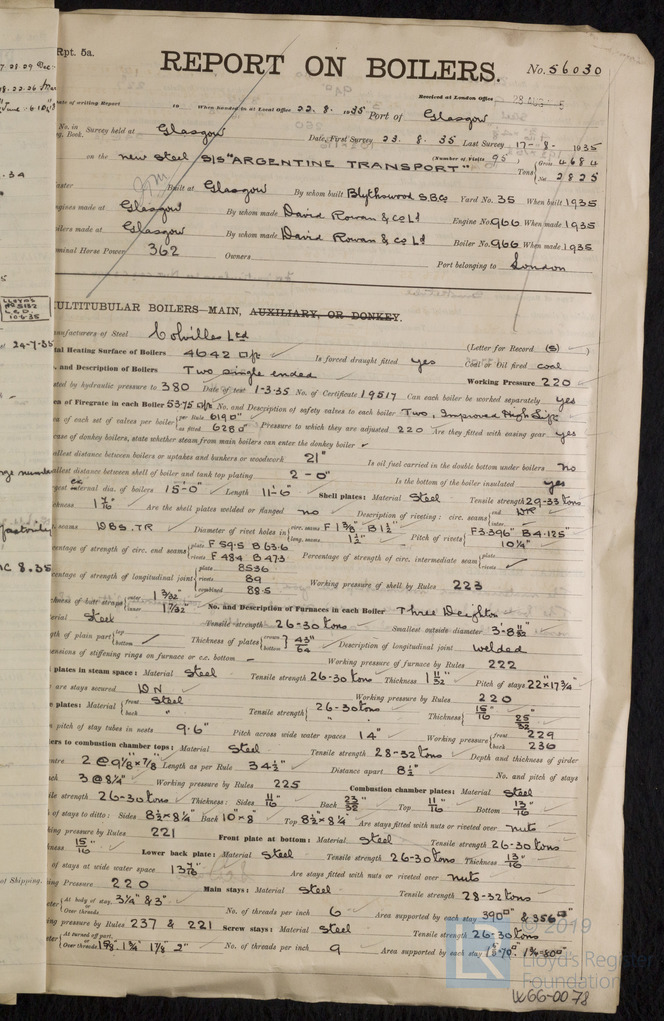 Rpt. 5a.
REPORT ON BOILERS.
No. 56030
Received at London Office
Date of writing Report 19 When handed in at Local Office 22.8.1935 Port of Glasgow
No. in Survey held at Glasgow Date, First Survey 23.8.35 Last Survey 17-8-1935
on the new steel S/S "ARGENTINE TRANSPORT" (Number of Visits 95) Tons Gross 4684
Net 2825
Built at Glasgow By whom built Blythswood S.B.Co Yard No. 35 When built 1935
Engines made at Glasgow By whom made David Rowan & Co Ld Engine No. 966 When made 1935
Boilers made at Glasgow By whom made David Rowan & Co Ld Boiler No. 966 When made 1935
Nominal Horse Power 362 Owners Port belonging to London
MULTITUBULAR BOILERS—MAIN, AUXILIARY, OR DONKEY.
Manufacturers of Steel Colvilles Ltd
(Letter for Record (S) )
Total Heating Surface of Boilers 4642 □ft Is forced draught fitted yes Coal or Oil fired coal
No. and Description of Boilers Two single ended Working Pressure 220
Tested by hydraulic pressure to 380 Date of test 1-3-35 No. of Certificate 19517 Can each boiler be worked separately yes
Area of Firegrate in each Boiler 53.75 □ft No. and Description of safety valves to each boiler Two, Improved High Lift
Area of each set of valves per boiler per Rule 6190" as fitted 6280" Pressure to which they are adjusted 220 Are they fitted with easing gear yes
In case of donkey boilers, state whether steam from main boilers can enter the donkey boiler
Smallest distance between boilers or uptakes and bunkers or woodwork 21" Is oil fuel carried in the double bottom under boilers no
Smallest distance between shell of boiler and tank top plating 2-0" Is the bottom of the boiler insulated yes
Largest external dia. of boilers 15'-0" Length 11'-6" Shell plates: Material Steel Tensile strength 29-33 tons
Thickness 1 7/16" Are the shell plates welded or flanged no Description of riveting: circ. seams end DR
long. seams DBS. TR Diameter of rivet holes in circ. seams F 1 3/8" B 1 1/2" long. seams 1 1/2" Pitch of rivets F 3.396" B 4.125" 10 1/4"
Percentage of strength of circ. end seams plate F 59.5 B 63.6 rivets F 48.4 B 47.3 Percentage of strength of circ. intermediate seam plate rivets
Percentage of strength of longitudinal joint plate 85.36 rivets 89 combined 88.5 Working pressure of shell by Rules 223
Thickness of butt straps outer 1 3/32" inner 1 7/32" No. and Description of Furnaces in each Boiler Three Deighton
Material Steel Tensile strength 26-30 tons Smallest outside diameter 3'-8 11/32"
Length of plain part top bottom Thickness of plates crown bottom 43/64" Description of longitudinal joint welded
Dimensions of stiffening rings on furnace or c.c. bottom Working pressure of furnace by Rules 222
End plates in steam space: Material Steel Tensile strength 26-30 tons Thickness 1 11/32" Pitch of stays 22" x 17 3/4"
How are stays secured DN Working pressure by Rules 220
Tube plates: Material front Steel back " Tensile strength 26-30 tons " Thickness 15/16" 25/32"
Mean pitch of stay tubes in nests 9.6" Pitch across wide water spaces 14" Working pressure front 229 back 236
Girders to combustion chamber tops: Material Steel Tensile strength 28-32 tons Depth and thickness of girder
at centre 2 @ 9 1/8" x 7/8" Length as per Rule 34 1/2" Distance apart 8 1/2" No. and pitch of stays
in each 3 @ 8 1/4" Working pressure by Rules 225 Combustion chamber plates: Material Steel
Tensile strength 26-30 tons Thickness: Sides 11/16" Back Top 11/16" Bottom 13/16"
Pitch of stays to ditto: Sides 8 1/2" x 8 1/4" Back 10" x 8" Top 8 1/2" x 8 1/4" Are stays fitted with nuts or riveted over nuts
Working pressure by Rules 221 Front plate at bottom: Material Steel Tensile strength 26-30 tons
Thickness 15/16" Lower back plate: Material Steel Tensile strength 26-30 tons Thickness 13/16"
Pitch of stays at wide water space 13 7/8" Are stays fitted with nuts or riveted over nuts
Working Pressure 220 Main stays: Material Steel Tensile strength 28-32 tons
Diameter At body of stay, or Over threads 3 1/4" & 3" No. of threads per inch 6 Area supported by each stay 390□" & 356□"
Working pressure by Rules 237 & 221 Screw stays: Material Steel Tensile strength 26-30 tons
Diameter At turned off part, or Over threads 1 5/8" 1 3/4" 1 7/8" 2" No. of threads per inch 9 Area supported by each stay
© 2019
Lloyd's Register
Foundation
W66-0078